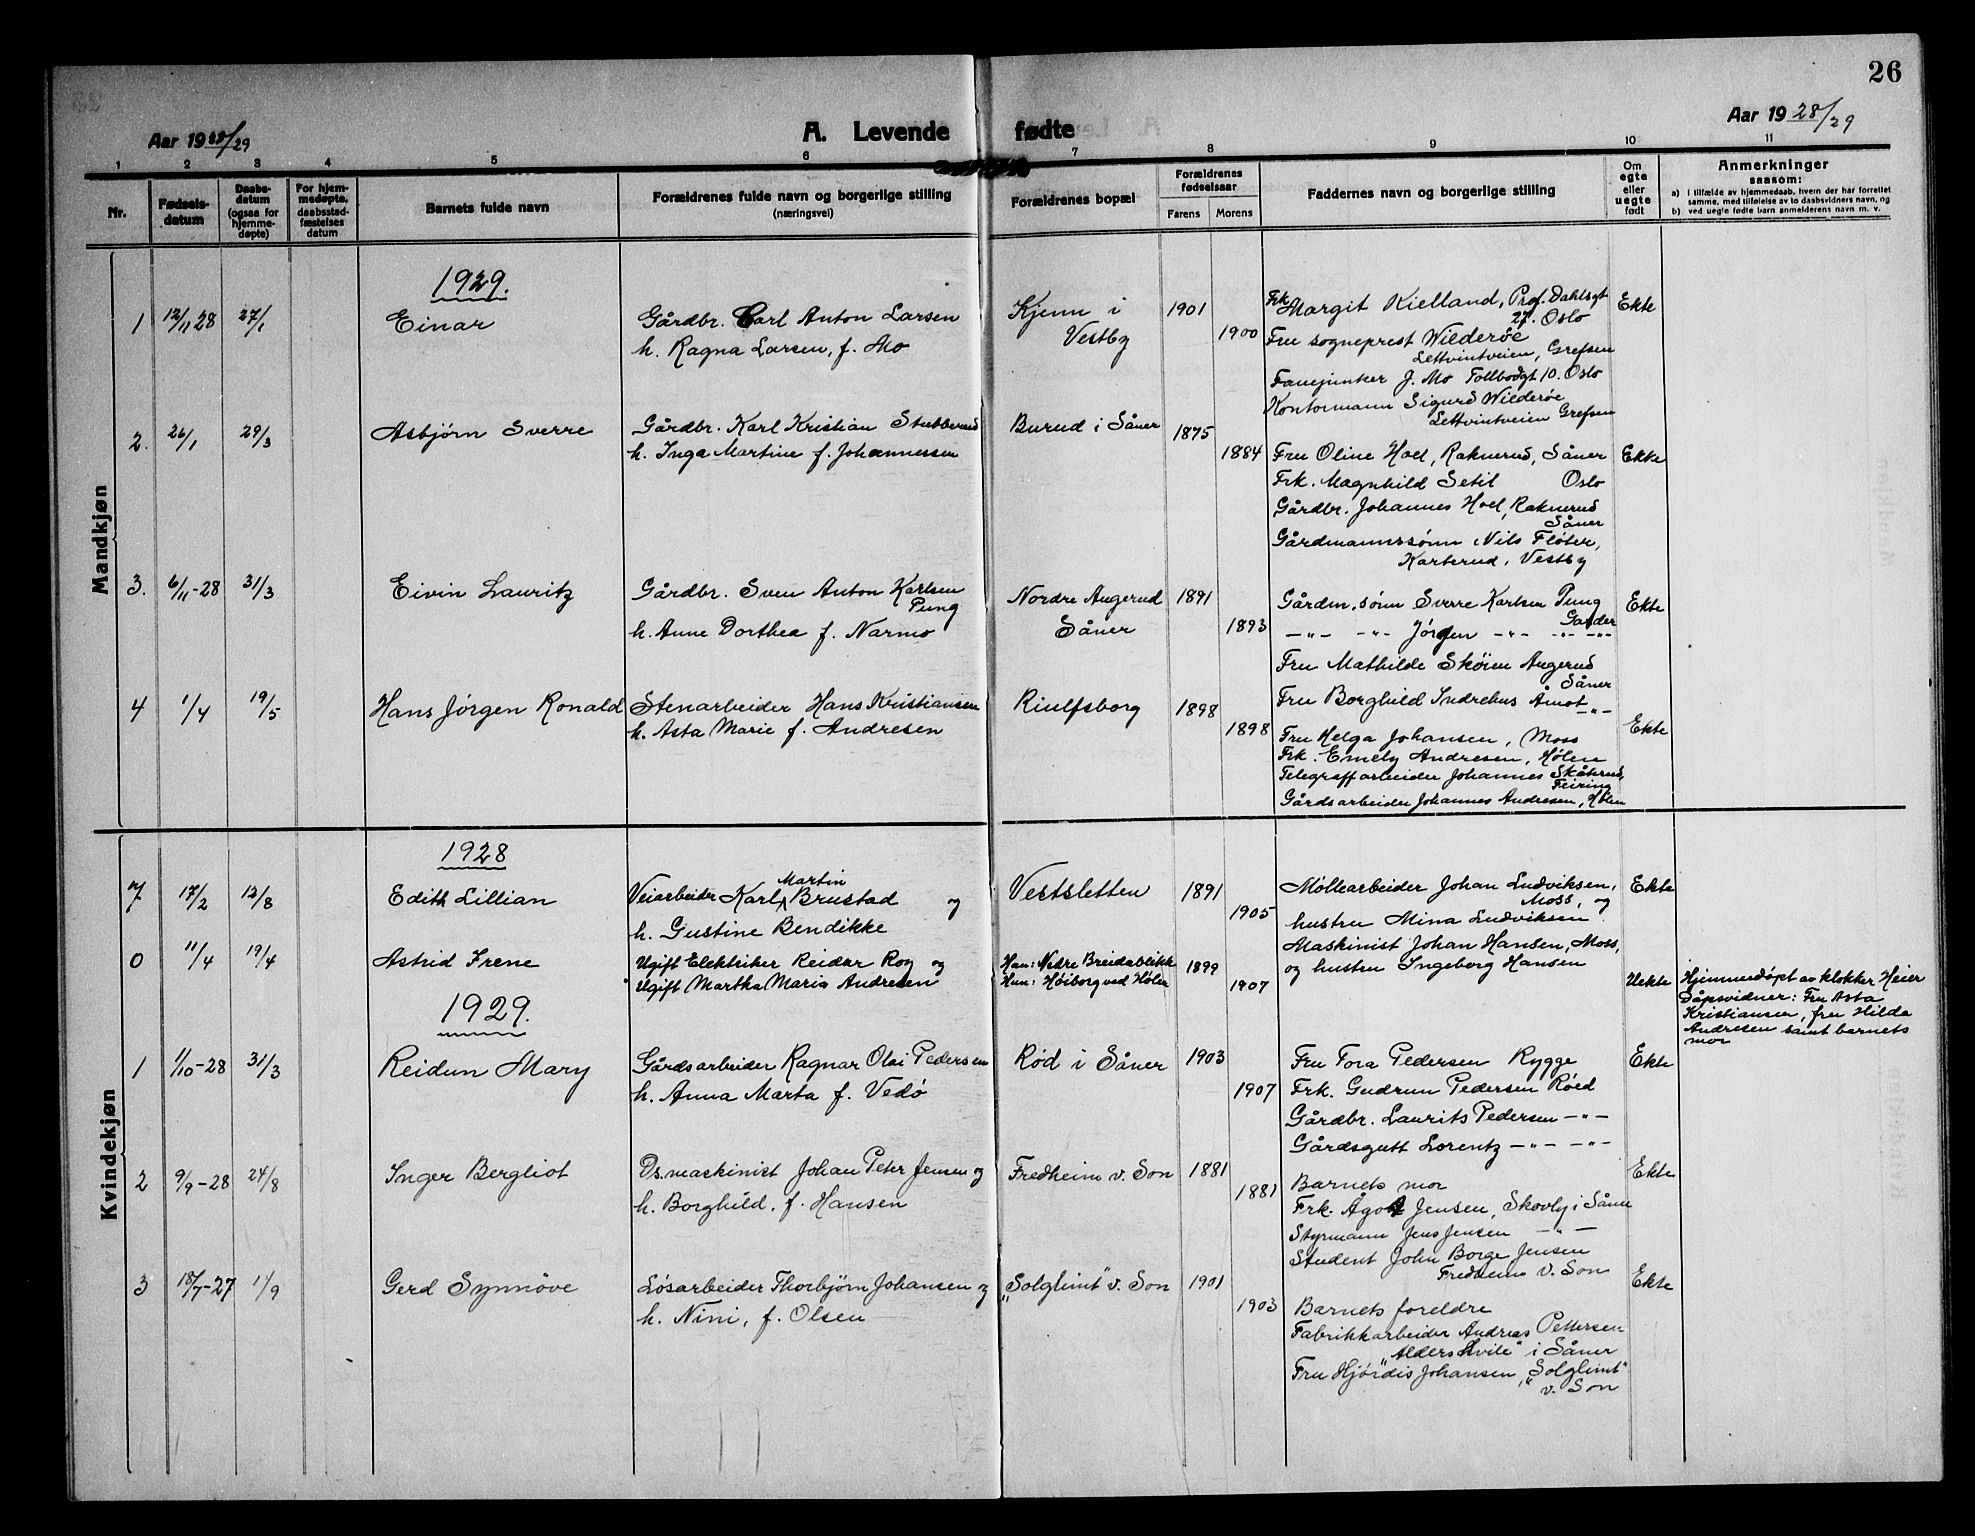 26
Aar 1928/29
A. Levende fødte
Aar 1928/29
1 2 3 4 5 6 7 8 9 10 11
Nr.
Fødsels-
datum
Daabs-
datum
(ogsaa for
hjemme-
døpte)
For hjem-
medøpte,
daabsstad-
fæstelses
datum
Barnets fulde navn
Forældrenes fulde navn og borgerlige stilling
(næringsvei)
Forældrenes bopæl
Forældrenes
fødselsaar
Farens Morens
Faddernes navn og borgerlige stilling
Om
egte
eller
uegte
født
Anmerkninger
saasom:
a) i tilfælde av hjemmedaab, hvem der har forrettet
samme, med tilføielse av to daabsvidners navn, og
b) ved uegte fødte barn anmelderens navn m. v.
Mandkjøn
1929.
1 12/11 28 27/1 Einar
Gårdbr. Carl Anton Larsen
h. Ragna Larsen, f. Mo
Kjenn i
Vestby
1901
1900
Frk. Margit Kielland, Prof. Dahlsgt
27. Oslo
Fru sogneprest Wilderöe
Lettvintveien, Grefsen
Fanejunker J. Mo Tollbodgt 10. Oslo
Kontormann Sigurd Wilderöe
Lettvintveien Grefsen
Ekte
2. 26/1 29/3 Asbjørn Sverre
Gårdbr. Karl Kristian Stubberud
h. Inga Martine f. Johannessen
Burud i Såner
1875
1884
Fru Oline Hoel, Raknerud, Såner
Frk. Magnhild Setil Oslo
Gårdbr. Johannes Hoel, Raknerud
Såner
Gårdmannssønn Nils Fløter,
Karterud, Vestby
Ekte
3. 6/11-28 31/3 Eivin Lauritz
Gårdbr. Sven Anton Karlsen
Pung
h. Anne Dorthea f. Narmo
Nordre Augerud
Såner
1891
1893
Gårdm.sønn Sverre Karlsen Pung
Garder
-"- -"- Jørgen -"- -"- -"-
Fru Mathilde Skøien Augerud
Såner
Fru Borghild Indrehus Åmot -"-
Ekte
4 1/4 19/5 Hans Jørgen Ronald
Stenarbeider Hans Kristiansen
h. Asta Marie f. Andresen
Riulfsborg
1898
1898
Fru Helga Johansen, Moss
Frk. Emely Andresen, Hølen
Telegraffarbeider Johannes Skåtrud,
Feiring
Gårdsarbeider Johannes Andresen, Hølen
Ekte
Kvindekjøn
1928
7 17/2 12/8 Edith Lillian
Martin
Veiarbeider Karl Brustad og
h. Gustine Bendikke
Vestsletten
1891
1905
Møllearbeider Johan Ludviksen,
Moss, og
hustru Mina Ludviksen
Maskinist Johan Hansen, Moss,
og hustru Ingeborg Hansen
Ekte
0 11/4 19/4 Astrid Irene
Ugift Elektriker Reidar Roy og
Ugift Martha Maria Andresen
Han: Nedre Breidablikk
Hun: Høiborg ved Hølen
1899
1907
Uekte
Hjemmedøpt av klokker Heier
Dåpsvidner: Fru Asta
Kristiansen, fru Hilda
Andresen samt barnets
mor
1929.
1 1/10-28 31/3 Reidun Mary
Gårdsarbeider Ragnar Olai Pedersen
h. Anna Marta f. Vedø
Rød i Såner
1903
1907
Fru Tora Pedersen Rygge
Frk. Gudrun Pedersen Røed
Gårdbr. Laurits Pedersen -"-
Gårdsgutt Lorentz -"- -"-
Ekte
2 9/9-28 24/8 Inger Bergliot
Ds.maskinist Johan Peter Jensen og
h. Borghild, f. Hansen
Fredheim v. Son
1881
1881
Barnets mor
Frk. Ågot Jensen, Skovly i Såner
Styrmann Jens Jensen -"-
Student John Borge Jensen
Fredheim v. Son
Ekte
3 18/7-27 1/9 Gerd Synnöve
Løsarbeider Thorbjørn Johansen og
h. Nini, f. Olsen
"Solglimt" v. Son
1901
1903
Barnets foreldre
Fabrikkarbeider Andreas Pettersen
"Aldershvile" i Såner
Fru Hjördis Johansen, "Solglimt"
v. Son
Ekte